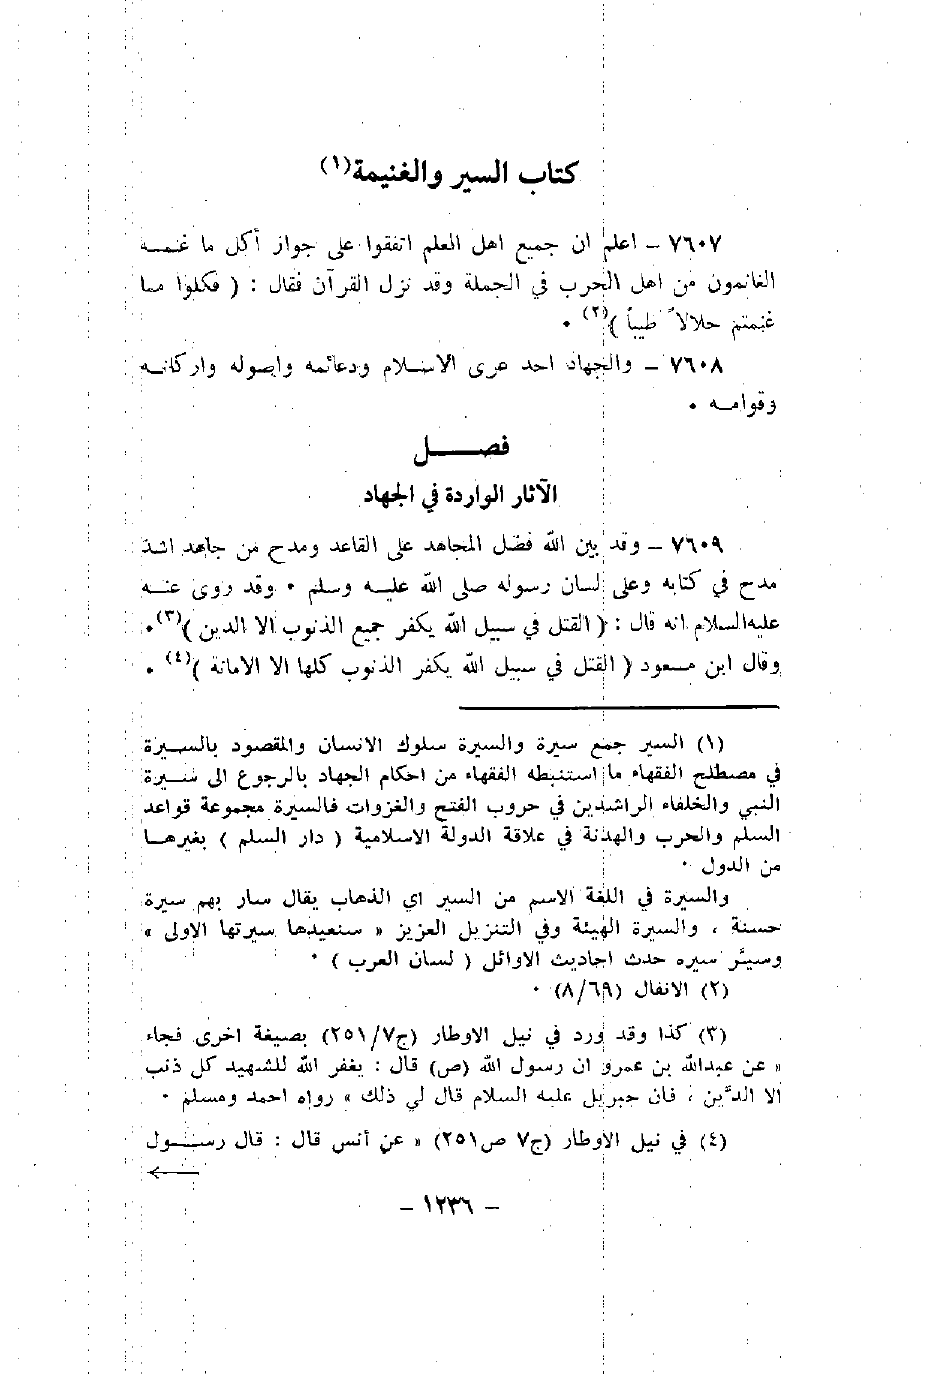 كتاب السير والغنيمة (١)
٧٦٠٧ – اعلم ان جميع اهل العلم اتفقوا على جواز أكل ما غنمــه
الغانمون من اهل الحرب في الجملة وقد نزل القرآن فقال : ( فكلوا مما
غنمتم حلالاً طيباً )(٢) ٠
٧٦٠٨ – والجهاد احد عرى الاسلام ودعائمه واصوله واركانــه
وقوامــه ٠
فصــــل
الآثار الواردة في الجهاد
٧٦٠٩ – وقد بين الله فضل المجاهد على القاعد ومدح من جاهد اشد
مدح في كتابه وعلى لسان رسوله صلى الله عليــه وسلم ٠ وقد روى عنــه
عليه السلام انه قال : ( القتل في سبيل الله يكفر جميع الذنوب الا الدين )(٣)٠
وقال ابن مسعود ( القتل في سبيل الله يكفر الذنوب كلها الا الامانة )(٤) ٠
(١) السير جمع سيرة والسيرة سلوك الانسان والمقصود بالسيرة
في مصطلح الفقهاء ما استنبطه الفقهاء من احكام الجهاد بالرجوع الى سيرة
النبي والخلفاء الراشدين في حروب الفتح والغزوات فالسيرة مجموعة قواعد
السلم والحرب والهدنة في علاقة الدولة الاسلامية ( دار السلم ) بغيرهــا
من الدول ٠
والسيرة في اللغة الاسم من السير اي الذهاب يقال سار بهم سيرة
حسنة ، والسيرة الهيئة وفي التنزيل العزيز « سنعيدها سيرتها الاولى »
وسيَّر سيره حدث احاديث الاوائل ( لسان العرب ) ٠
(٢) الانفال (٨/٦٩) ٠
(٣) كذا وقد ورد في نيل الاوطار (ج٢٥١/٧) بصيغة اخرى فجاء
« عن عبدالله بن عمرو ان رسول الله (ص) قال : يغفر الله للشهيد كل ذنب
الا الدَّين ، فان جبريل عليه السلام قال لي ذلك » رواه احمد ومسلم ٠
(٤) في نيل الاوطار (ج٧ ص٢٥١) « عن أنس قال : قال رســول
– ١٢٣٦ –